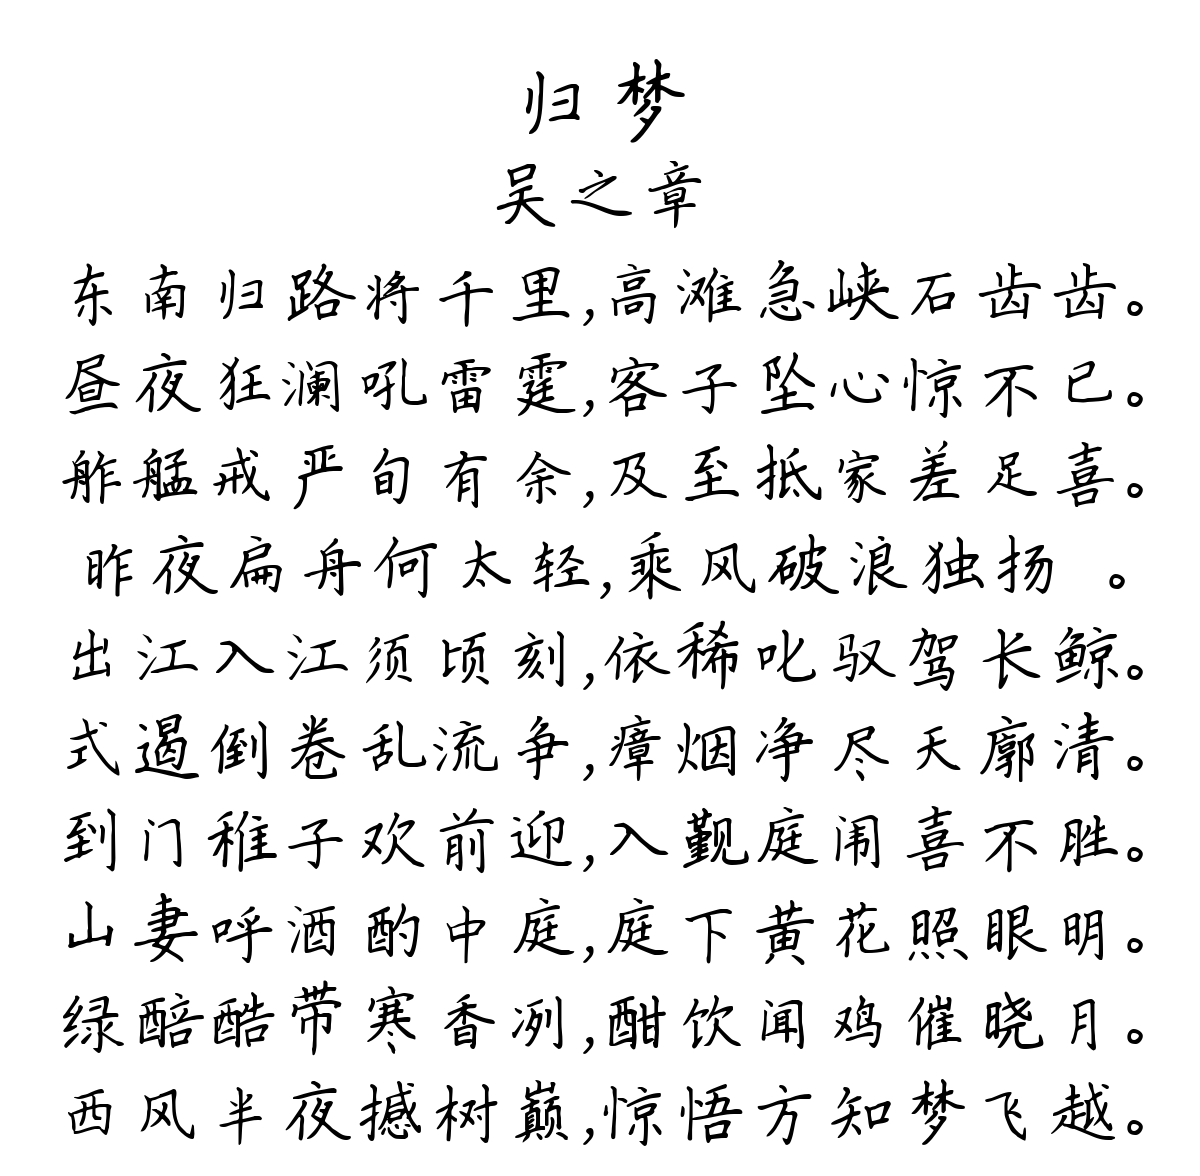 归梦
吴之章
东南归路将千里,高滩急峡石齿齿。
昼夜狂澜吼雷霆,客子坠心惊不已。
舴艋戒严旬有余,及至抵家差足喜。
昨夜扁舟何太轻,乘风破浪独扬 。
出江入江须顷刻,依稀叱驭驾长鲸。
式遏倒卷乱流争,瘴烟净尽天廓清。
到门稚子欢前迎,入觐庭闱喜不胜。
山妻呼酒酌中庭,庭下黄花照眼明。
绿醅酷带寒香冽,酣饮闻鸡催晓月。
西风半夜撼树巅,惊悟方知梦飞越。